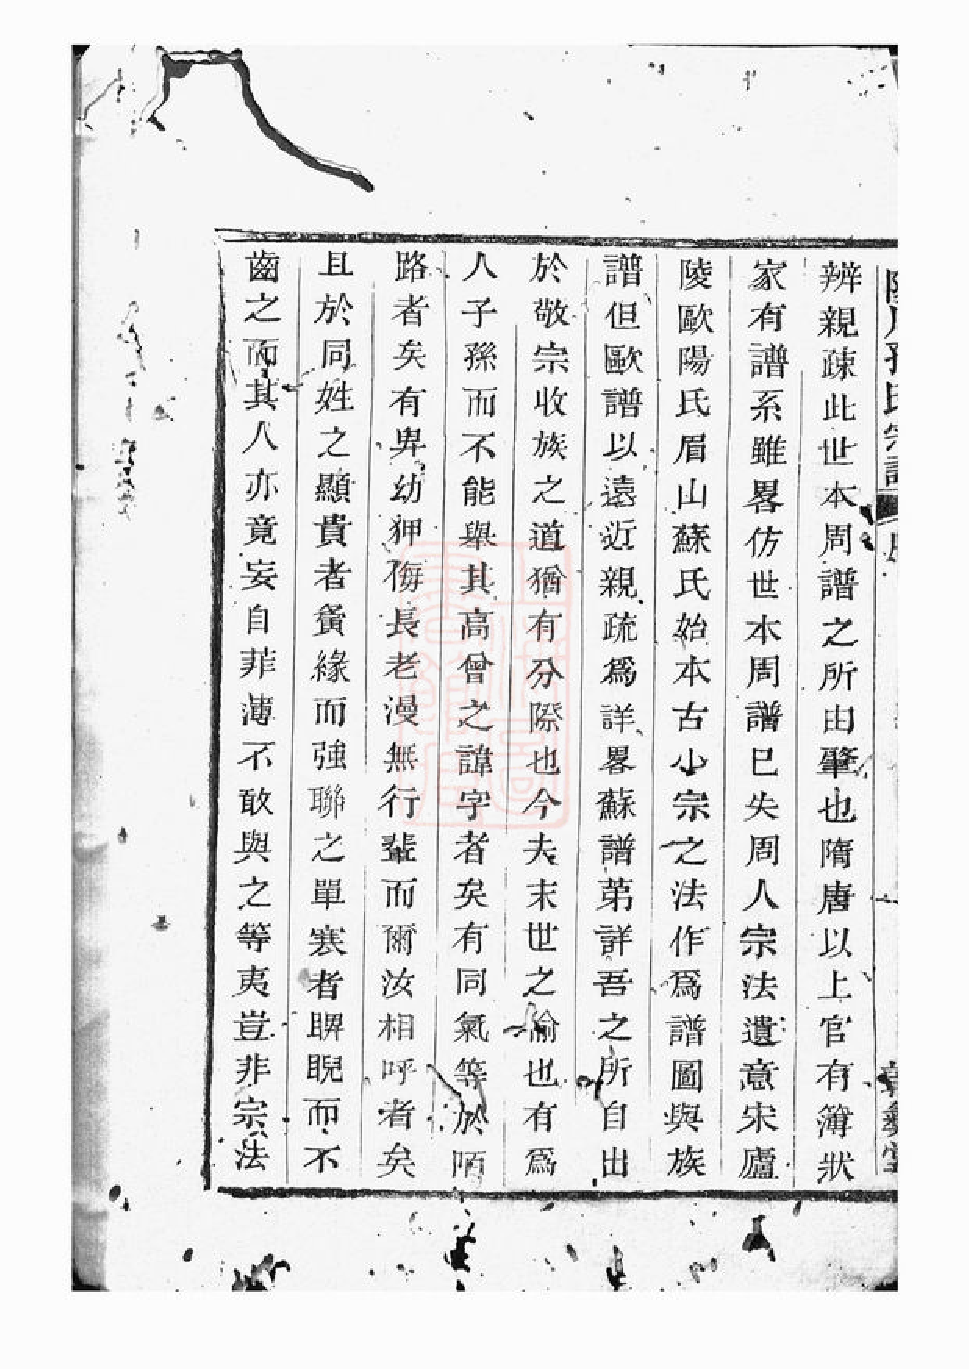 孫氏宗譜
辨親疎此世本周譜之所由肇也隋唐以上官有簿狀
家有譜系雖畧仿世本周譜已失周人宗法遺意宋廬
陵歐陽氏眉山蘇氏始本古小宗之法作爲譜圖與族
譜但歐譜以遠近親疏爲詳畧蘇譜第詳吾之所自出
於敬宗收族之道猶有分際也今夫末世之偷也有爲
人子孫而不能舉其高曾之諱字者矣有同氣等於陌
路者矣有卑幼狎侮長老漫無行輩而爾汝相呼者矣
且於同姓之顯貴者夤緣而強聯之單寒者睥睨而不
齒之而其人亦竟妄自菲薄不敢與之等夷豈非宗法